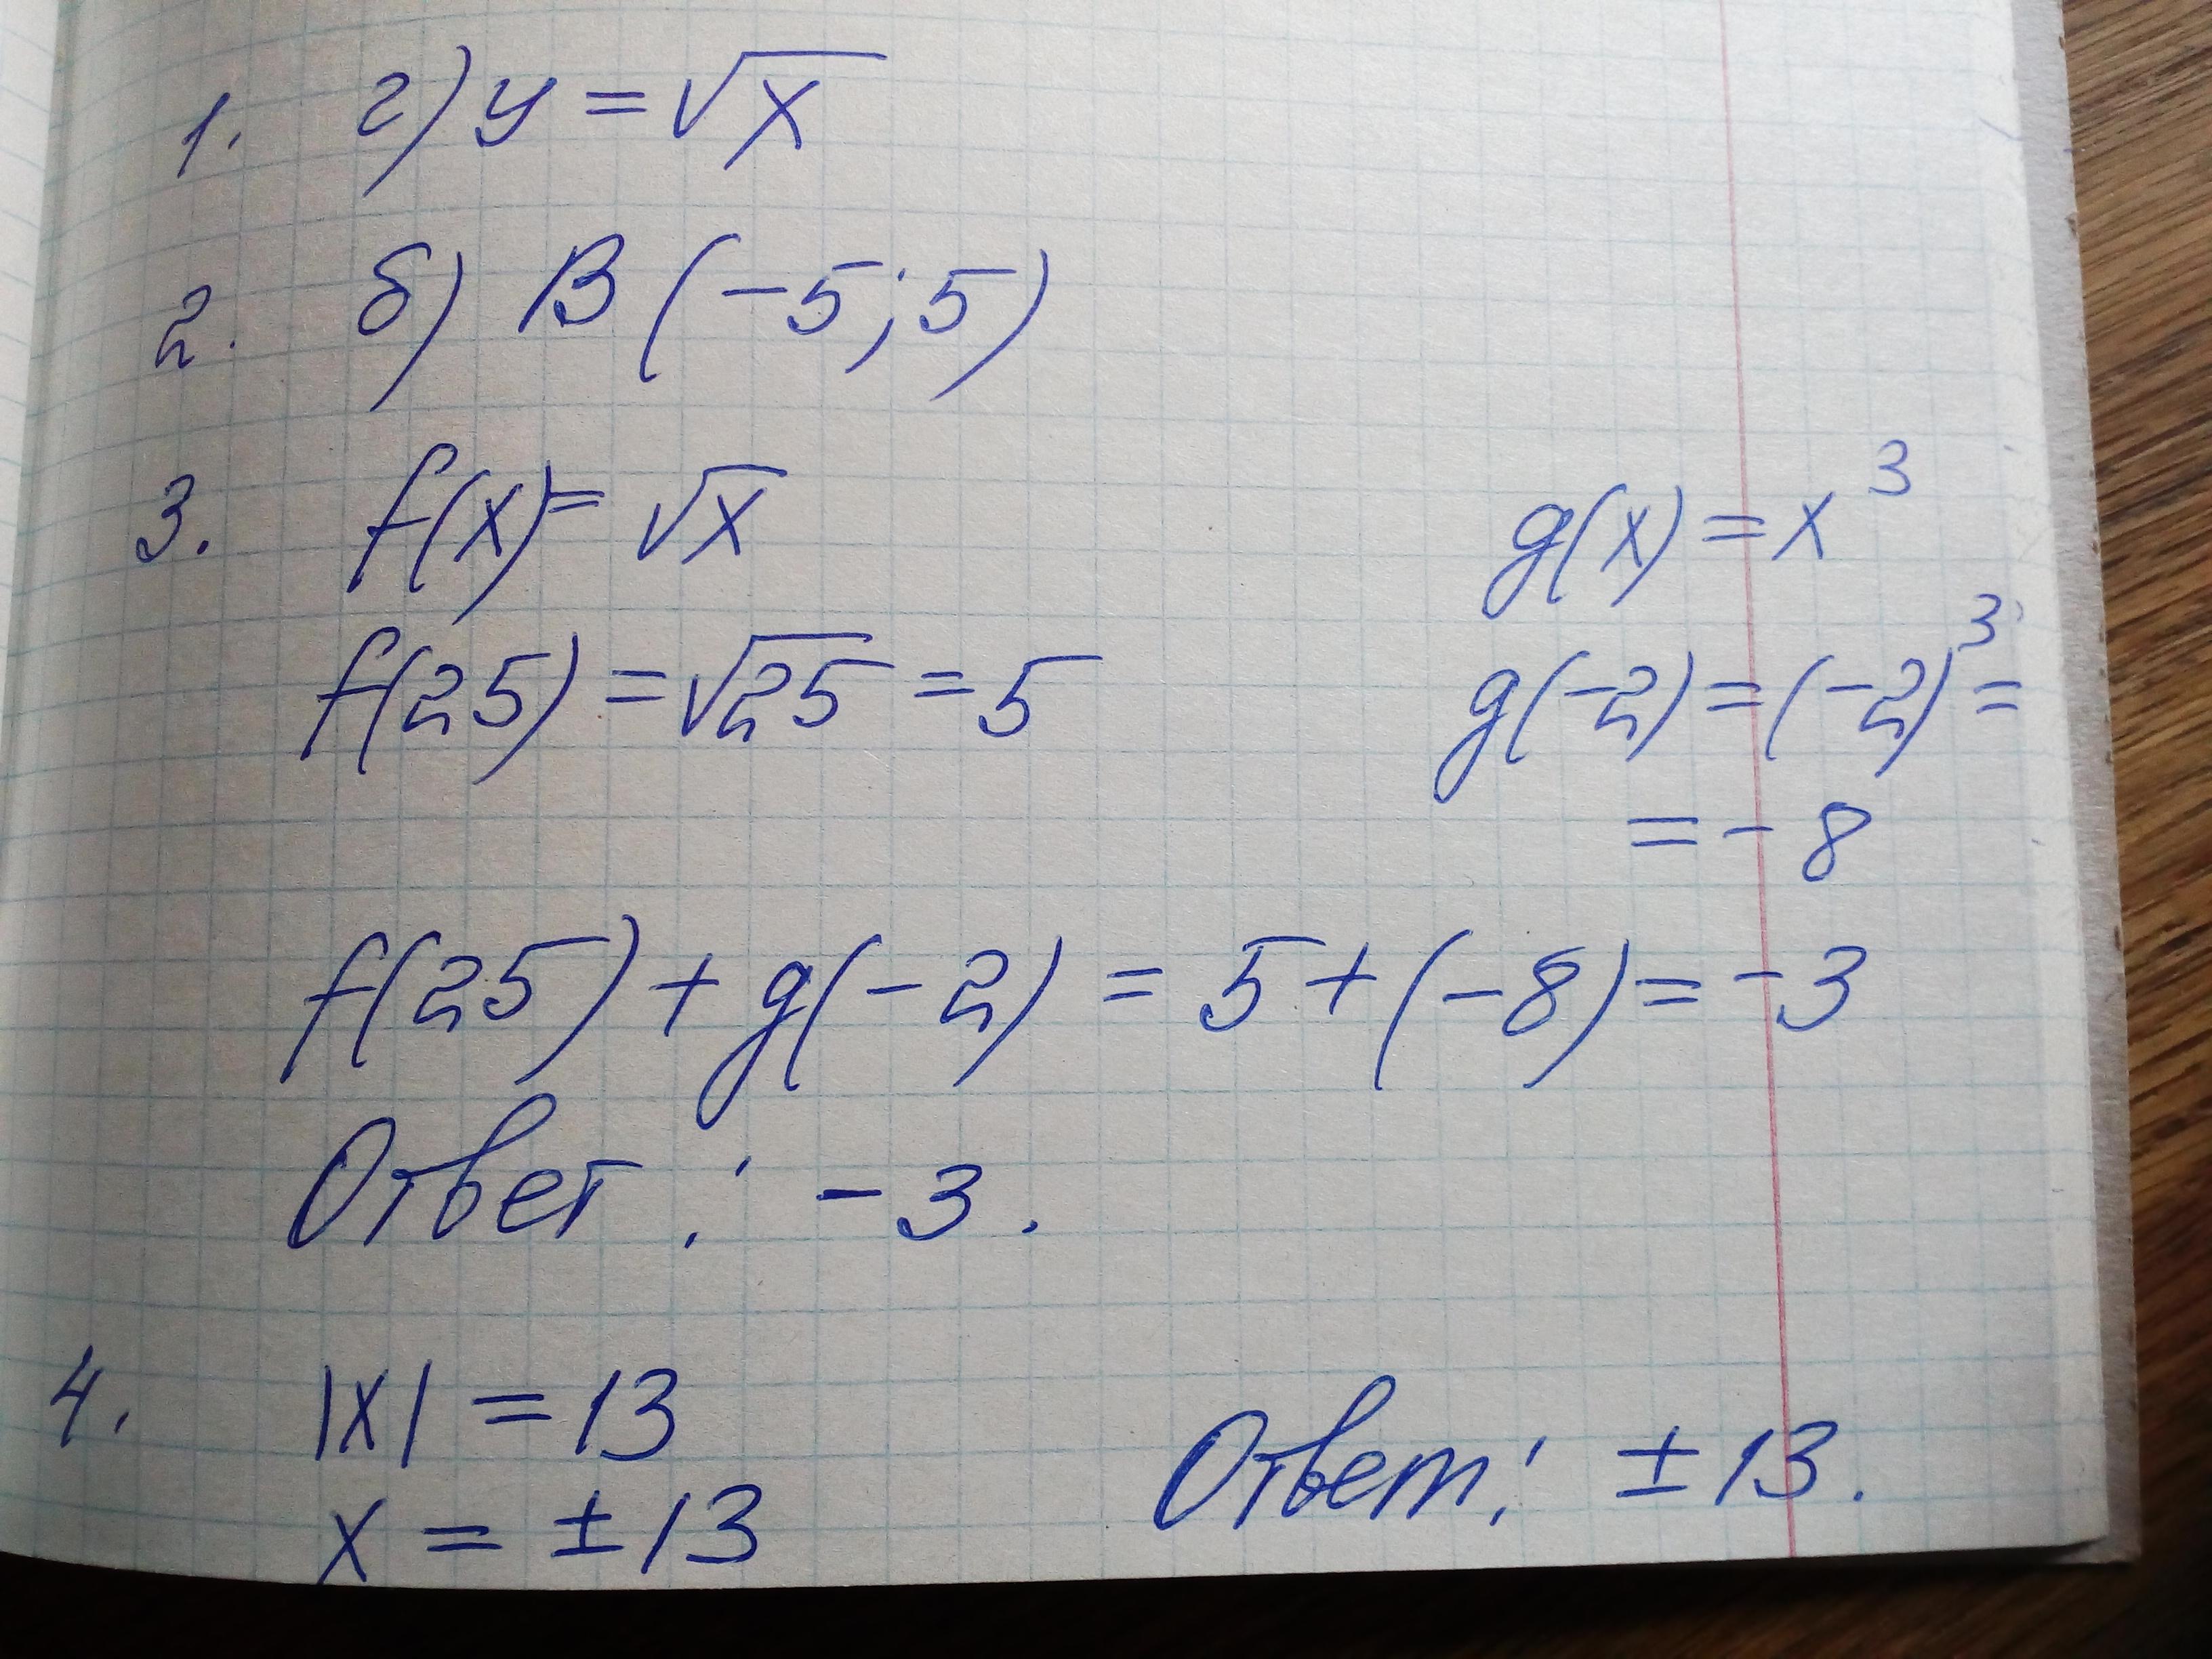 1. г) y = √x
2. б) B (-5; 5)
3. f(x) = √x g(x) = x³
f(25) = √25 = 5 g(-2) = (-2)³ =
= -8
f(25) + g(-2) = 5 + (-8) = -3
Ответ: -3.
4. |x| = 13
x = ±13 Ответ: ±13.